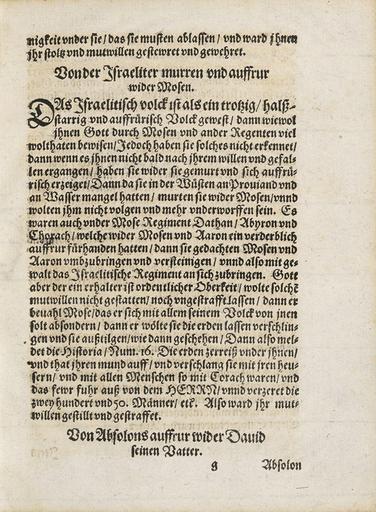 nigkeit vnder sie/das sie musten ablassen/vnd ward jhnen
jhr stoltz vnd mutwillen gestewret vnd gewehret.
Von der Israeliter murren vnd auffrur
wider Mosen.
DAs Israelitisch volck ist als ein trotzig/halß-
starrig vnd auffrürisch Volck gewest/dann wiewol
jhnen Gott durch Mosen vnd ander Regenten viel
wolthaten bewisen/Jedoch haben sie solches nicht erkennet/
dann wenn es jhnen nicht bald nach jhrem willen vnd gefal-
len ergangen/haben sie wider sie gemurt vnd sich auffrü-
risch erzeiget/Dann da sie in der Wüsten an Prouiand vnd
an Wasser mangel hatten/murten sie wider Mosen/vnnd
wolten jhm nicht volgen vnd mehr vnderworffen sein. Es
waren auch wider Mose Regiment Dathan/Abyron vnd
Chorach/welche wider Mosen vnd Aaron ein verderblich
auffrur fürhanden hatten/dann sie gedachten Mosen vnd
Aaron vmbzubringen vnd versteinigen/vnnd also mit ge-
walt das Israelitische Regiment an sich zubringen. Gott
aber der ein erhalter ist ordentlicher Oberkeit/wolte solchē
mutwillen nicht gestatten/noch vngestrafft lassen/dann er
beuahl Mose/das er sich mit allem seinem Volck von jnen
solt absondern/dann er wölte sie die erden lassen verschlin-
gen vnd sie außtilgen/wie dann geschehen/Dann also mel-
det die Historia/Num. 16. Die erden zerreiß vnder jhnen/
vnd that jhren mund auff/vnd verschlang sie mit jren heu-
sern/vnd mit allen Menschen so mit Corach waren/vnd
das fewr fuhr auß von dem HERRN/vnnd verzeret die
zwey hundert vnd 50. Männer/etc. Also ward jhr mut-
willen gestillt vnd gestraffet.
Von Absolons auffrur wider Dauid
seinen Vatter.
g Absolon